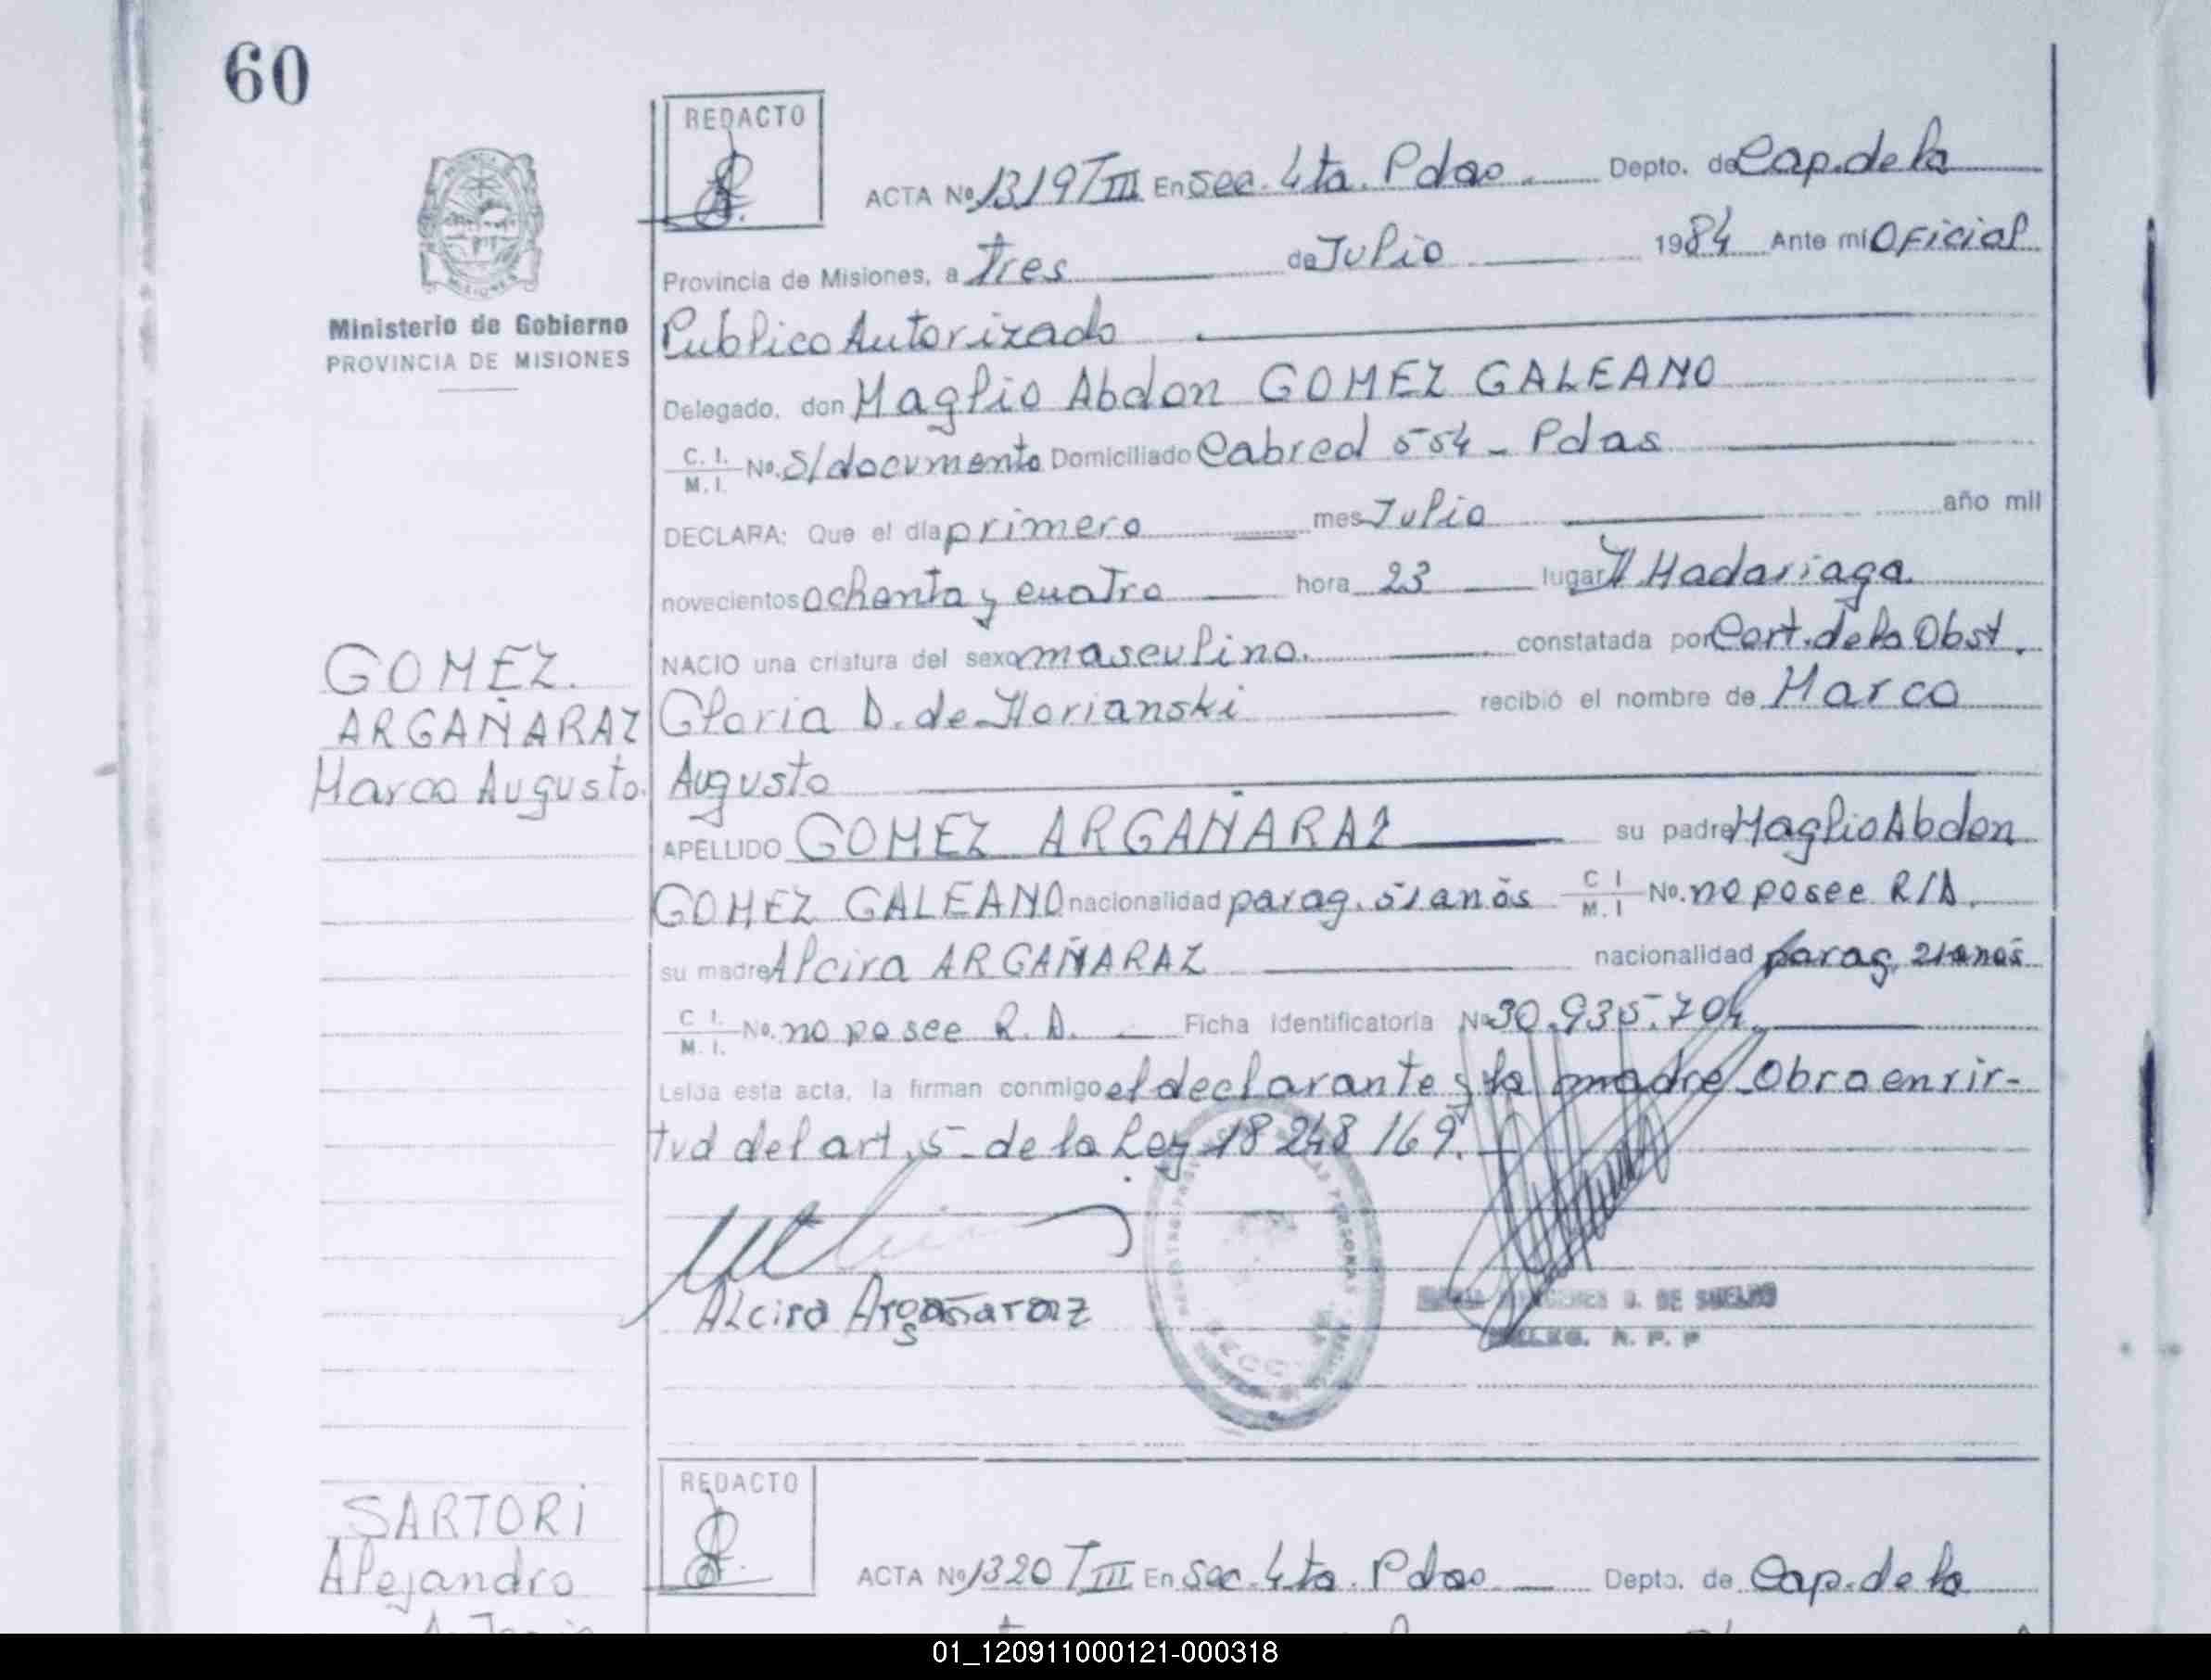 60
REDACTO
ACTA Nº 1319 T III En Sec. 4ta. Pdas. Depto. de Cap. de la
Provincia de Misiones, a tres de Julio 1984 Ante mi Oficial
Ministerio de Gobierno
PROVINCIA DE MISIONES
Publico Autorizado
Delegado, don Maglio Abdon GOMEZ GALEANO
C. I. / M. I. No. S/documento Domiciliado Cabred 554 - Pdas
DECLARA: Que el día primero mes Julio año mil
novecientos ochenta y cuatro hora 23 lugar H Madariaga.
NACIO una criatura del sexo masculino. constatada por Cert. de la Obst.
GOMEZ.
ARGAÑARAZ
Marco Augusto.
Gloria D. de Horianski recibió el nombre de Marco
Augusto
APELLIDO GOMEZ ARGAÑARAZ su padre Maglio Abdon
GOMEZ GALEANO nacionalidad parag. 51 años C I / M. I No. no posee R/D.
su madre Alcira ARGAÑARAZ nacionalidad parag. 21 años
C I. / M. I. No. no posee R. D. Ficha Identificatoria Nº 30.935.704.
Leída esta acta, la firman conmigo el declarante y la madre. Obro en vir-
tud del art. 5 - de la Ley 18248/69.
Alcira Argañaraz
U. DE SUELMO
A. P. P
SARTORI
Alejandro
REDACTO
ACTA Nº 1320 T III En Sec. 4ta. Pdas Depto. de Cap. de la
01_120911000121-000318